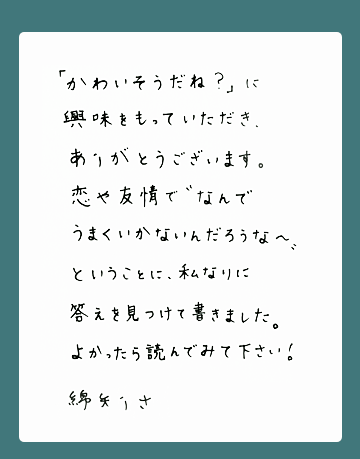 「かわいそうだね?」に
興味をもっていただき、
ありがとうございます。
恋や友情で〝なんで
うまくいかないんだろうな〜〟
ということに、私なりに
答えを見つけて書きました。
よかったら読んでみて下さい!
綿矢りさ